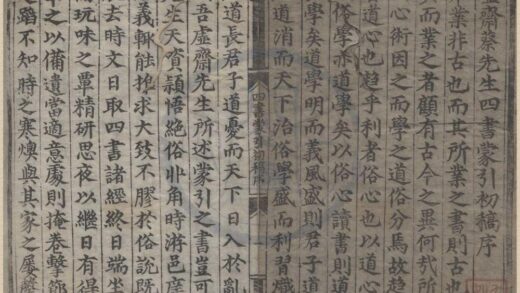 虛齋蔡先生四書蒙引初稿序
業非古也而其所業之書則古也
而業之者顧有古今之異何㢤所
心術因之而學之道俗分焉故趨
道心也趨乎利者俗心也以道心
俗學亦道學矣以俗心讀書則道
學矣道學明而義風盛則君子道
道消而天下治俗學盛而利習熾
四書蒙引初稿序
道長君子道憂而天下日入於亂
吾虛齋先生所述蒙引之書豈可
生天資穎悟絕俗丱角時游邑庠
義輒能推求大致不膠於俗說既
去時文日取四書諸經終日端坐
玩味之覃精研思夜以繼日有得
之以備遺當適意處則掩卷擊節
之蹈不知時之寒燠與其家之屢罄